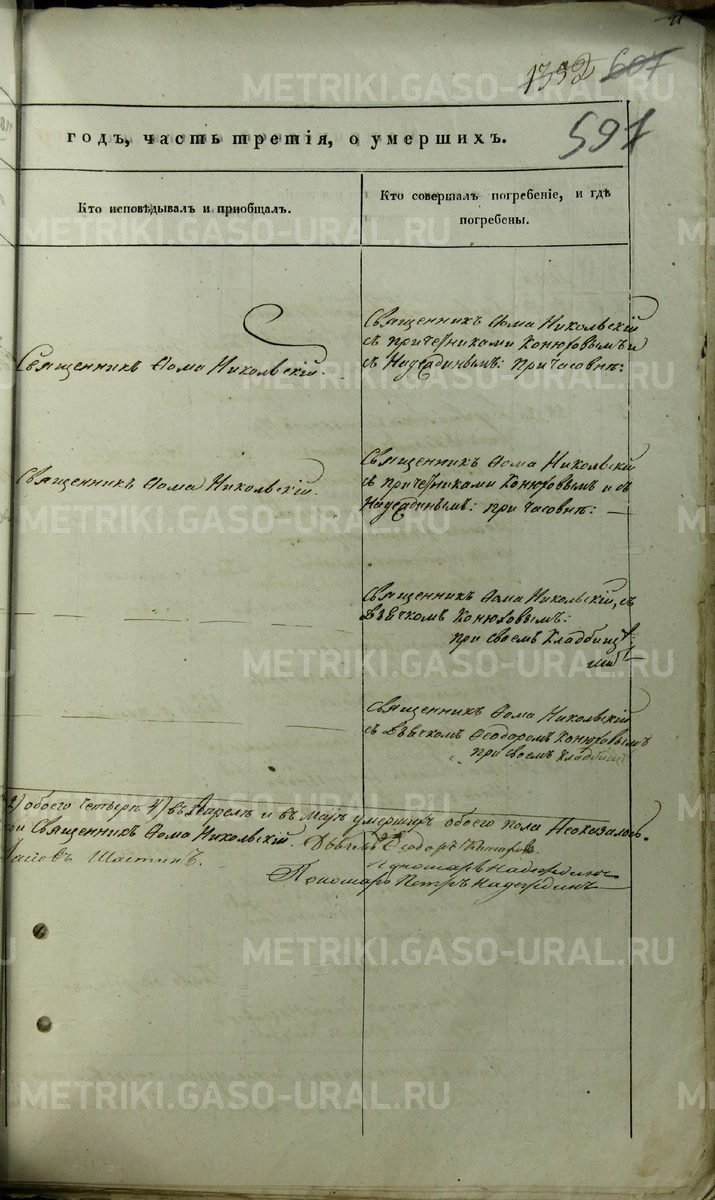 1332 607
597
годъ, часть третія, о умершихъ.
Кто исповѣдывалъ и приобщалъ.
Кто совершалъ погребеніе, и гдѣ
погребены.
Священникъ Ѳома Никольскій.
Священникъ Ѳома Никольскій
съ причетниками Конюховымъ и
съ Надеждинымъ: При часовнѣ:
Священникъ Ѳома Никольскій.
Священникъ Ѳома Никольскій
съ причетниками Конюховымъ и съ
Надеждинымъ: при часовнѣ:
Священникъ Ѳома Никольскій, съ
Дьячкомъ Конюховымъ:
при своемъ Кладбищѣ
Священникъ Ѳома Никольскій
съ Дьячкомъ Ѳеодоромъ Конюховымъ
при своемъ Кладбищѣ
2) обоего четверы 4) въ Апрелѣ и въ маіѣ умершихъ обоего пола Неоказалось.
Священникъ Ѳома Никольскій. Дьячекъ Ѳеодоръ
пономарь Надеждинъ
Пономарь Петръ Надеждинъ
METRIKI.GASO-URAL.RU